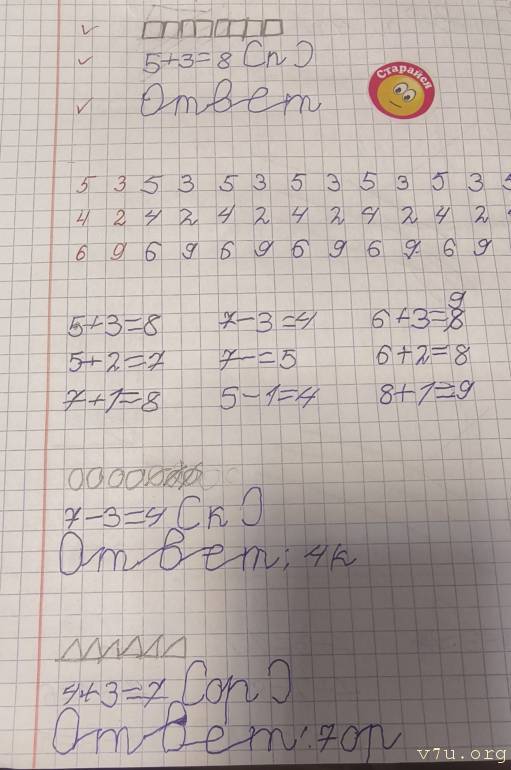 5+3=8 (п)
Старайся
Ответ
5 3 5 3 5 3 5 3 5 3 5 3 5
4 2 4 2 4 2 4 2 4 2 4 2 4
6 9 6 9 6 9 6 9 6 9 6 9
9
5+3=8 7-3=4 6+3=8
5+2=7 7-=5 6+2=8
7+1=8 5-1=4 8+1=9
7-3=4 (к)
Ответ: 4к
4+3=7 (ор)
Ответ: 7ор
v7u.org